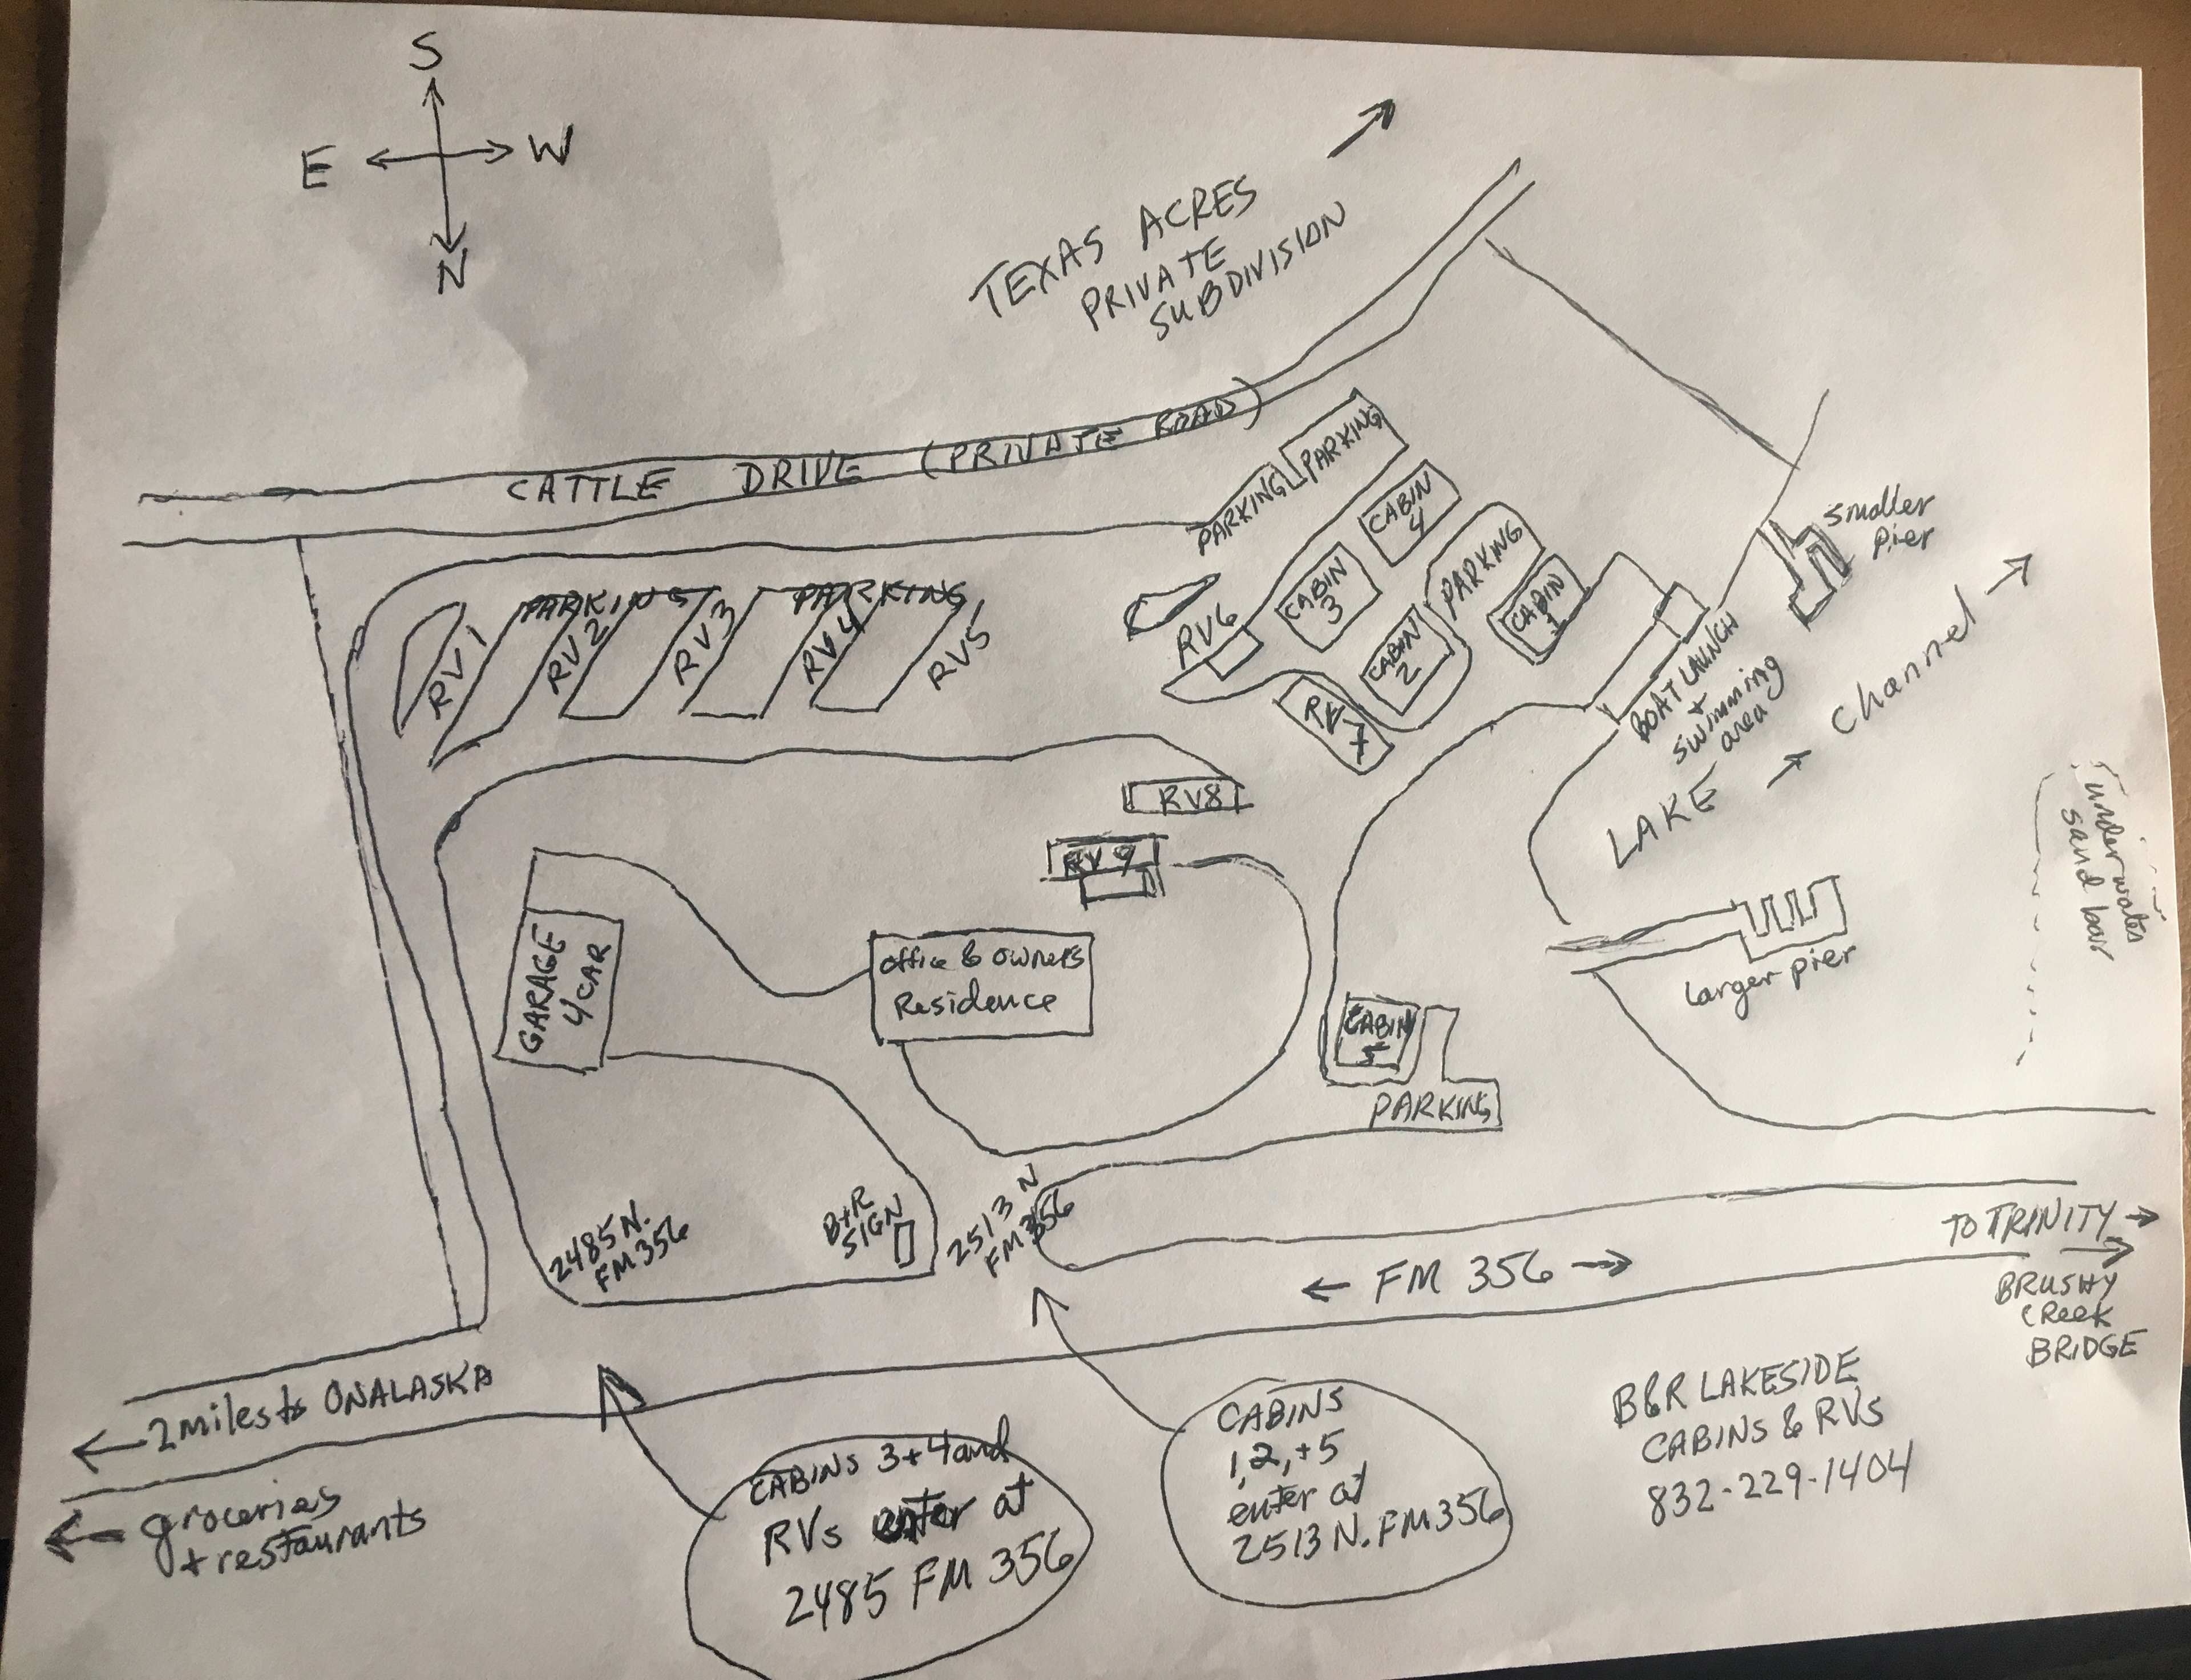 S
E
W
N
TEXAS ACRES
PRIVATE
SUBDIVISION
CATTLE DRIVE (PRIVATE ROAD)
PARKING
PARKING
CABIN
4
CABIN
3
PARKING
CABIN
1
CABIN
2
smaller
Pier
PARKING
PARKING
RV 1
RV 2
RV 3
RV 4
RV5
RV6
BOAT LAUNCH
+
swimming
area
LAKE → Channel
RV8
RV 9
underwater
sand bar
GARAGE
4 CAR
office & owners
Residence
larger pier
CABIN
5
PARKING
2485 N.
FM 356
B+R
SIGN
2513 N
FM 356
← FM 356 →
TO TRINITY →
BRUSHY
CReek
BRIDGE
← 2 miles to ONALASKA
← groceries
+ restaurants
CABINS 3+4 and
RVs enter at
2485 FM 356
CABINS
1,2,+5
enter at
2513 N. FM 356
B&R LAKESIDE
CABINS & RVs
832-229-1404